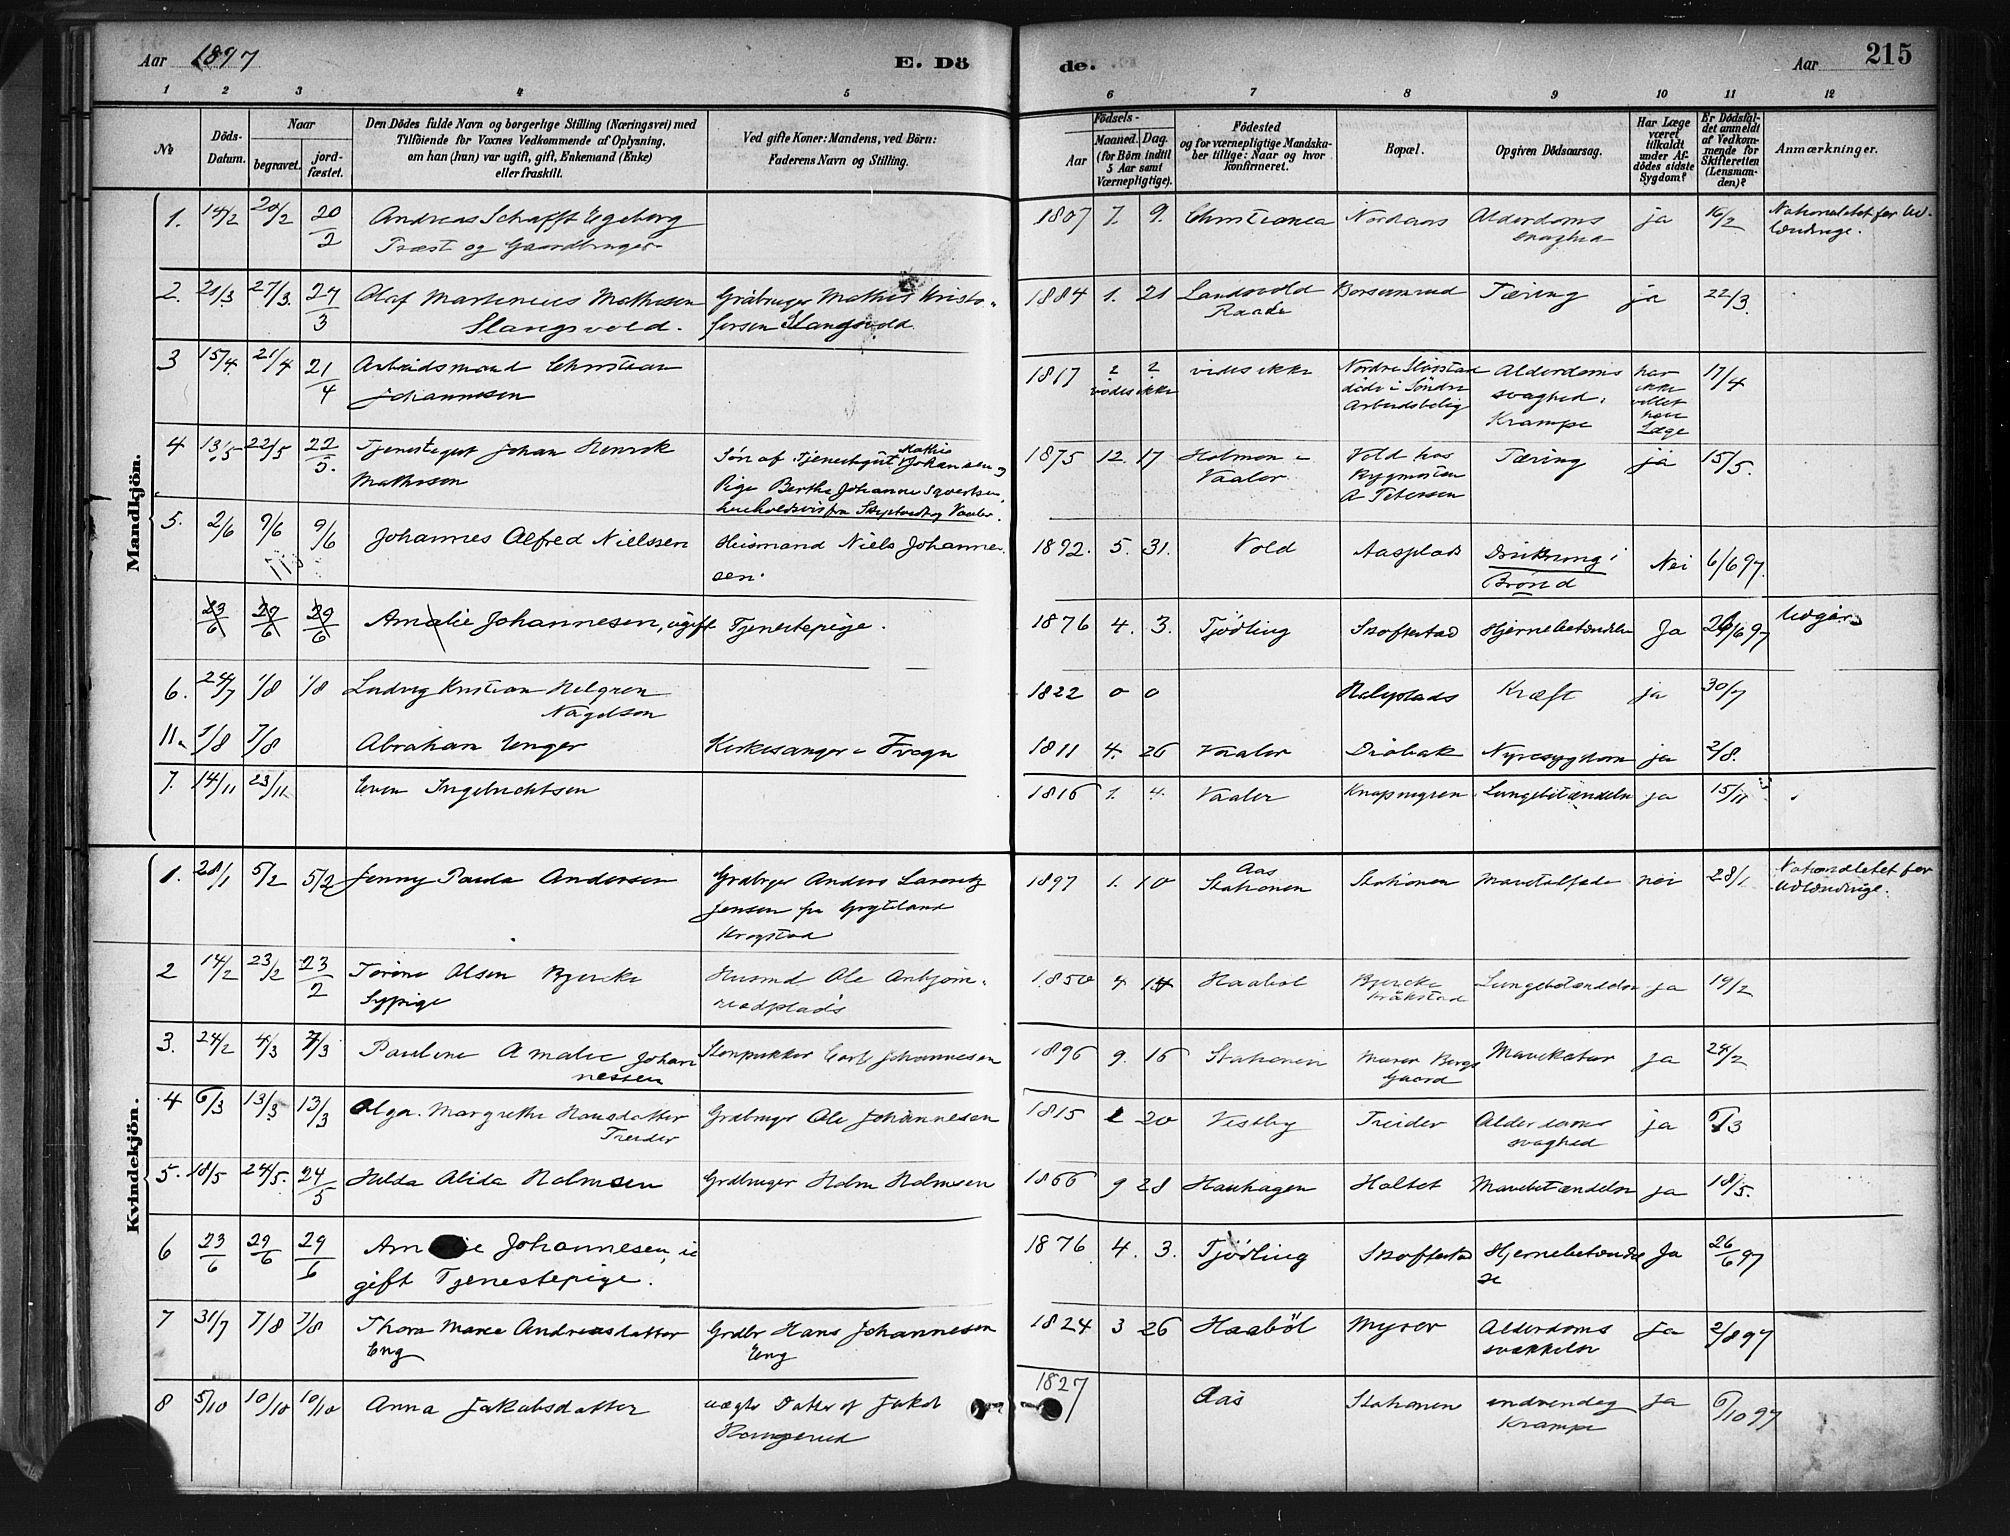 Aar 1897
E. Dö
de.
Aar
215
1 2 3 4 5 6 7 8 9 10 11 12
No
Döds-Datum.
Naar
begravet.
jord-fæstet.
Den Dödes fulde Navn og borgerlige Stilling (Næringsvei) med
Tilföiende for Voxnes Vedkommende af Oplysning,
om han (hun) var ugift, gift, Enkemand (Enke)
eller fraskilt.
Ved gifte Koner: Mandens, ved Börn:
Faderens Navn og Stilling.
Födsels-
Aar
Maaned.
Dag.
(for Börn indtil
5 Aar samt
Værnepligtige).
Födested
og for værnepligtige Mandska-
ber tillige: Naar og hvor
konfirmeret.
Bopæl.
Opgiven Dödsaarsag.
Har Læge
været
tilkaldt
under Af-
dödes sidste
Sygdom?
Er Dödsfal-
det anmeldt
af Vedkom-
mende for
Skifteretten
(Lensman-
den)?
Anmærkninger.
Mandkjön.
1. 14/2 20/2 20/2 Andreas Schafft Egeberg 1807 7. 9. Christiania Nordaas Alderdoms ja 16/2 Nationalitet for Ud-
Præst og Gaardbruger svaghed lændinge.
2. 21/3 27/3 27/3 Olaf Martinius Mathisen Gråbruger Mathis Kristo- 1884 1. 21 Landsvold Tæring ja 22/3.
Slangsvold. fersen Slangsvold. Raade
3 15/4 21/4 21/4 Arbeidsmand Christian 1817 vides ikke vides ikke Nordre Alderdoms har 17/4
Johannesen döde i Söndre svaghed. ikke
Arbeidsbolig Krampe villet
have
Læge
4 13/5 22/5 22/5. Tjenestegut Johan Henrik Sön af Tjenestegut Mathis Johansen 1875 12. 17 Holmen i Vold hos Tæring ja 15/5.
Mathisen Pige Berthe Johanne Vaaler Bygmester
Vaaler. A Petersen
5. 2/6 9/6 9/6 Johannes Alfred Nielssen Husmand Niels Johanne- 1892. 5. 31. Vold Aasplads Drukning i Nei 6/6 97.
sen. Brönd
23/6 29/6 29/6 Amalie Johannesen, ugift Tjenestepige. 1876 4. 3. Tjödling Skoftestad Hjernebetændelse Ja 26/6 97 Udgår
6. 24/7 1/8 1/8 Ludvig Kristian 1822 0 0 Kræft ja 30/7
11. 1/8 7/8 Abraham Enger Kirkesanger i 1811 4. 26 Vaaler Dröbak Nyresygdom ja 2/8.
7. 14/11 23/11 Even Ingebrechtsen 1816 1. 4. Vaaler Lungebetændelse ja 15/11
Kvindekjön.
1. 28/1 5/2 5/2 Jenny Paula Andersen Grdbrger Anders 1897 1. 10 Aas Stationen Stationen nei 28/1 Nationalitet for
Jensen fra Udlændinge.
Krogstad
2 14/2 23/2 23/2 Olsen Bjercke Husmd Ole 1850 4 14 Haabøl Bjercke Lungebetændelse ja 19/2
Sypige Kråkstad
3. 24/2 4/3 Pauline Amalie Johan Stenpukker Carl Johannesen 1896 9. 16 Stationen Murer Bergs Mavekatar ja 24/2
nessen Gaard
4 6/3 13/3 13/3 Olga Margrethe Hansdatter Grdbruger Ole Johannesen 1815 20 Vestby Treider Alderdoms ja
Treider svaghed
5. 18/5 24/5. 24/5 Hilda Alida Holmsen Grdbruger Holm Holmsen 1866 9 28 Holtet Mavebetændelse ja 18/5.
6 23/6 29/6 29/6 Johannesen, u 1876 4. 3. Tjödling Skoftestad Hjernebetændel Ja 26/6 97
gift Tjenestepige. se
7 31/7 7/8 7/8 Thora Maria Andreasdatter Grdbr Hans Johannesen 1824 3 26 Haaböl Myrer Alderdoms ja 2/8 97
Eng Eng svækkelse
8 5/10 10/10 10/10 Anna Jakobsdatter uægte Datter af Jakob 1827 Aas Stationen indvendig ja 6/10 97
Krampe